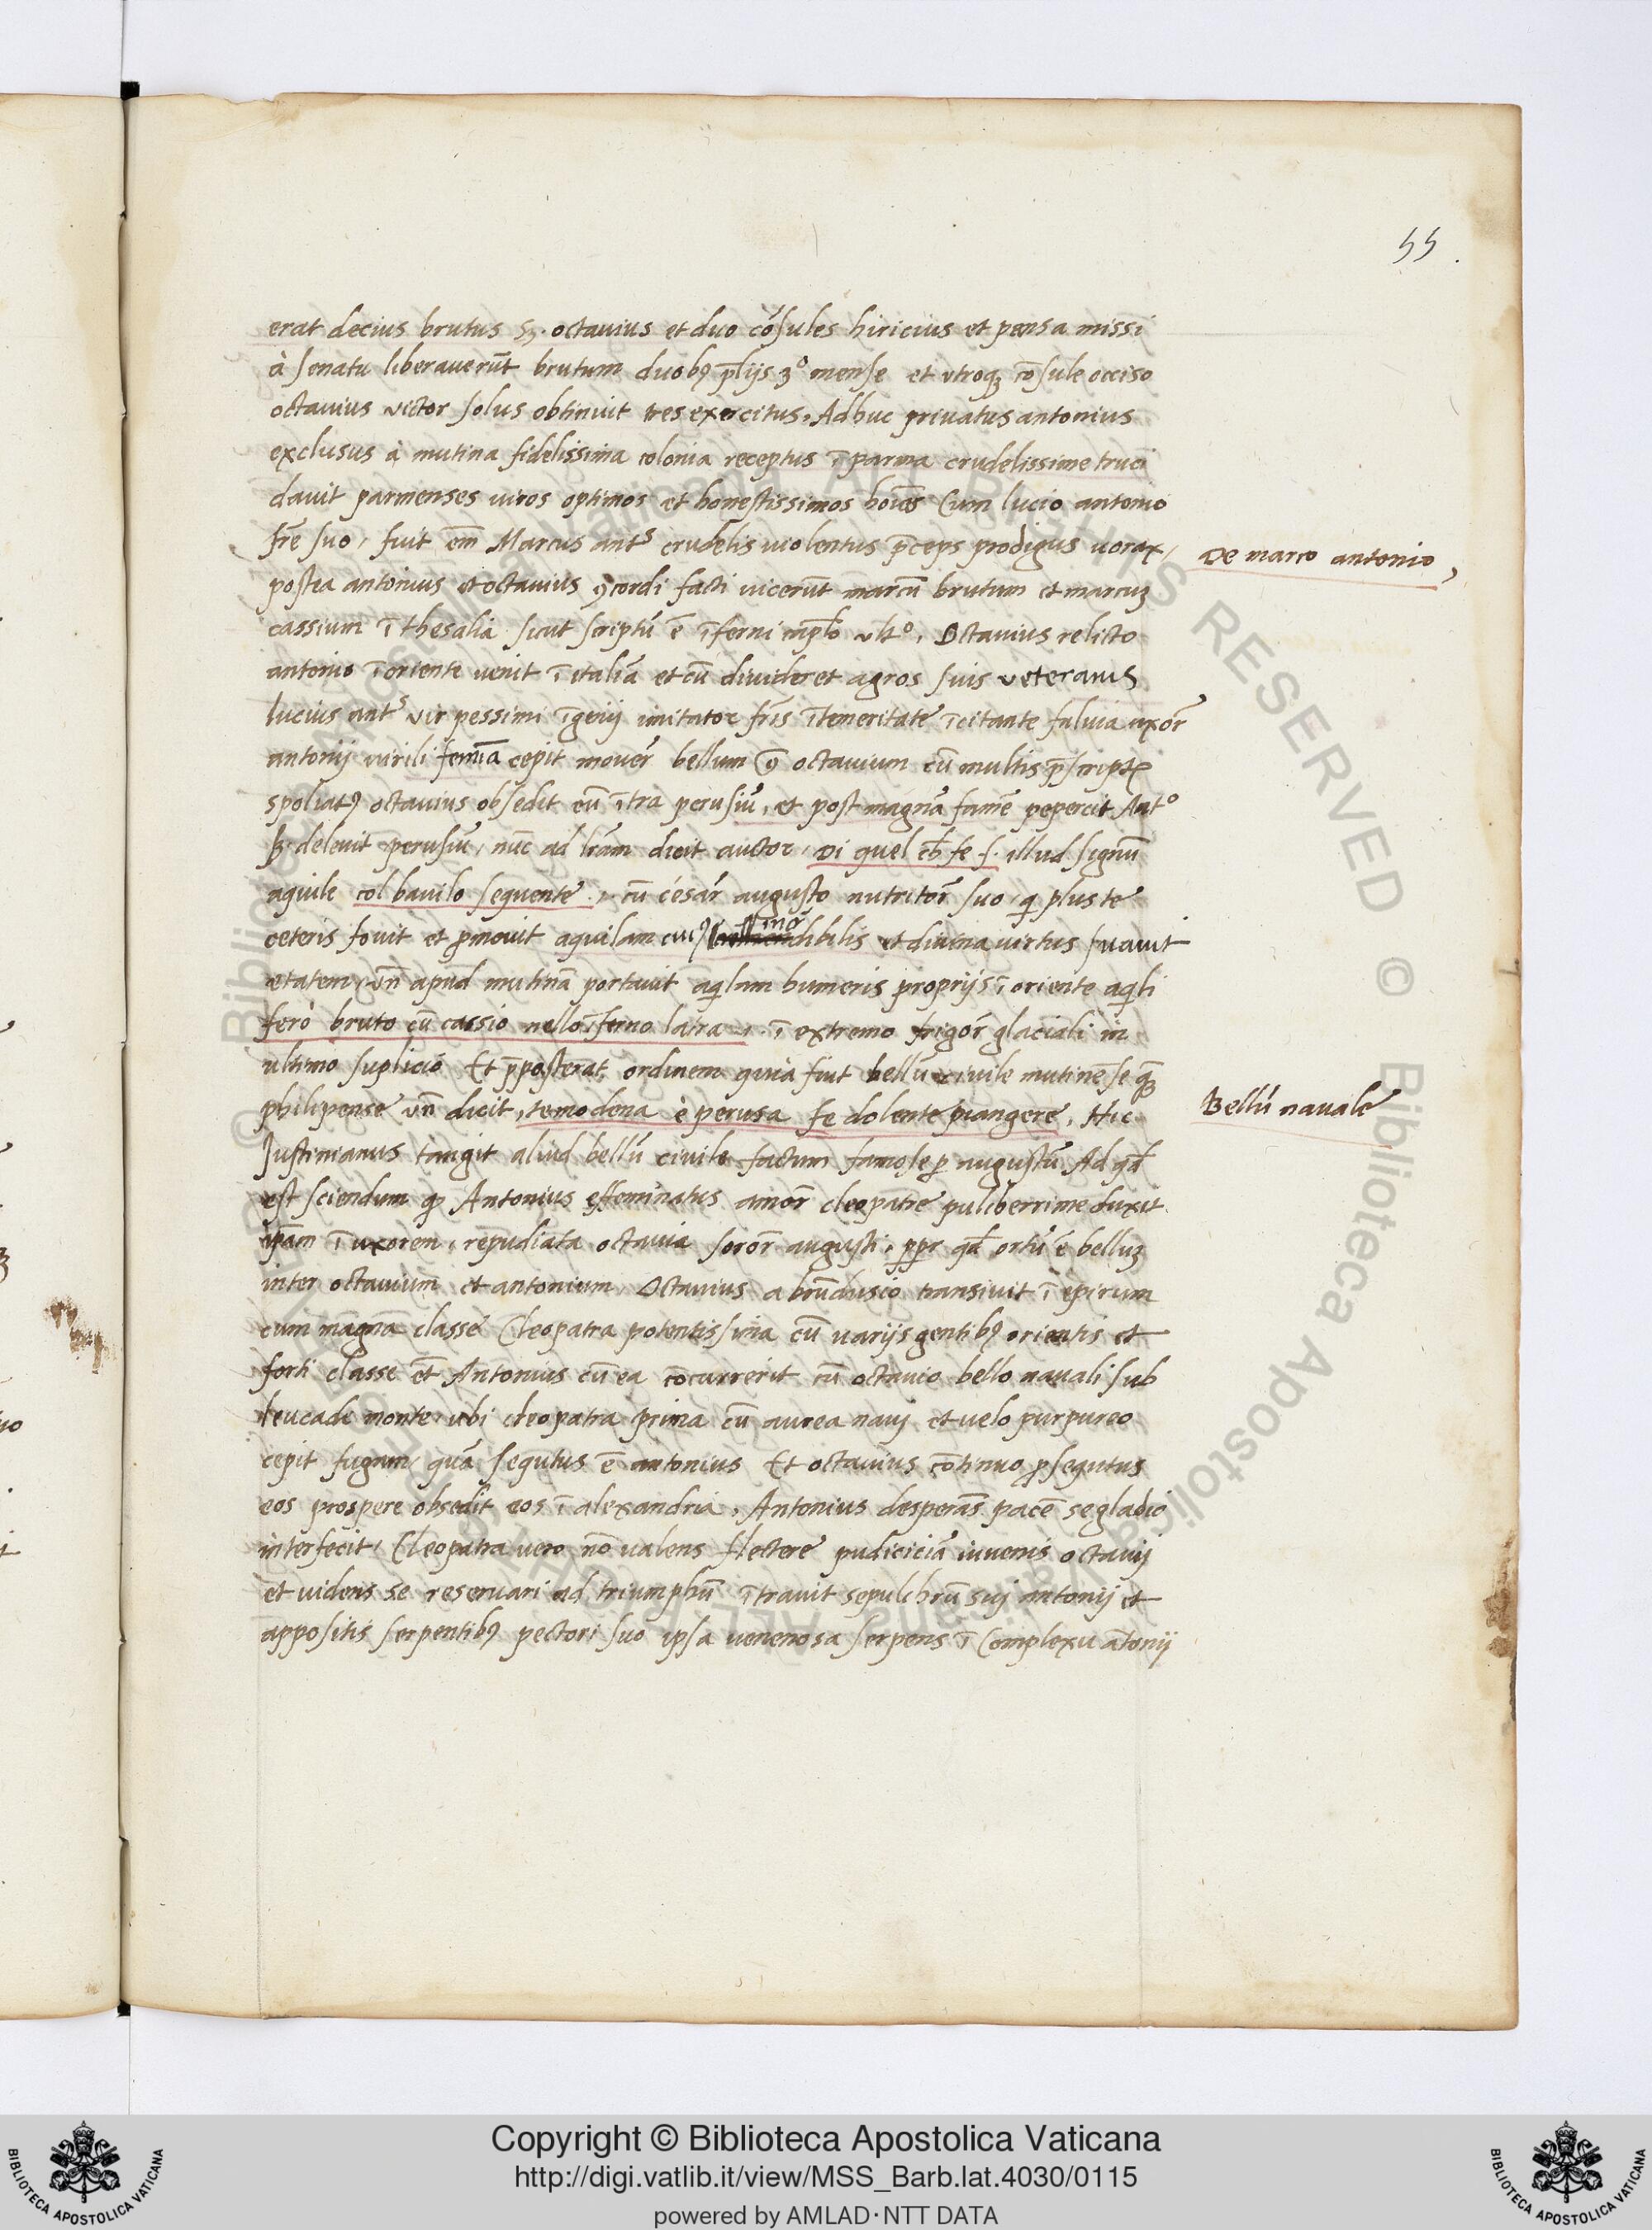 55.
erat decius brutus Sȝ. octauius et duo cōsules hiricius et pansa missi
à senatu liberauerūt brutum duobꝫ p̄lijs 3º mense et vtroqꝫ cōsule occiso
octauius victor solus obtinuit tres exercitus, Adhuc priuatus antonius
exclusus à mutina fidelissima colonia receptus ī parma crudelissime truci
dauit parmenses uiros optimos et honestissimos hoīes Cum lucio antonio
fr̄e suo, fuit em̄ Marcus antˢ crudelis uiolentus p̄ceps prodigus uorax,
De marco antonio,
postea antonius et octauius ꝯcordi facti uicerūt marcū brutum et marcuȝ
cassium ī thesalia sicut scriptū ē īferni vltº, Octauius relicto
antonio ī oriente uenit ī italiā et cū diuideret agros suis veteranis
lucius antˢ vir pessimi īgenij imitator fr̄is ī temeritate īcitante fuluia uxor̄
antonij uirili femīa cepit mouer̄ bellum octauium cū multis
spoliatꝰ octauius obsedit eū ītra perusiū, et post magnā famē pepercit Antº
sȝ deleuit perusiū, nūc ad lr̄am dicit auctor, Di quel ch̄ fe s. illud signū
aquile col bauilo sequente, cū césar̄ augusto nutritor̄ suo, q̄ plus te
ceteris fouit et ꝓmouit aquilam cuiꝰ et diuina virtus
etatem, vn̄ apud mutinā portauit aq̄lam humeris proprijs ī oriente aq̄li
fero bruto cū cassio nello īferno latra, ī extremo frigor̄ glaciali in
ultimo suplicio Et p̄posterat ordinem quia fuit bellū ciuile mutinēse
philipense vn̄ dicit, temodena è perusa fe dolente piangere, Hic
Bellū nauale
Justinianus tangit aliud bellū ciuile factum famose ꝑ augustū Ad qd̄
est sciendum ꝙ Antonius effeminatus amor̄ cleopatre pulcherrime duxit
ip̄am ī uxorem, repudiata octauia soror̄ augusti, ꝓpr qd̄ ortū ē belluȝ
inter octauium et antonium Octauius a brūdusio transiuit ī epirum
cum magna classe Cleopatra potentissima cū uarijs gentibꝫ orientis et
forti classe et̄ Antonius cū ea cōcurrerūt cū octauio bello nauali sub
leucade monte, ubi cleopatra prima cū aurea naui et uelo purpureo
cepit fugam, quā sequtus ē antonius Et octauius cōtinuo ꝓsequtus
eos prospere obsedit eos ī alexandria, Antonius desperās pacē se gladio
interfecit, Cleopatra uero nō ualens flectere pudiciciā iuuenis octauij
et uidens se reseruari ad triumphū ītrauit sepulchrū sui antonij et
appositis serpentibꝫ pectori suo ipsa uenenosa serpens ī Complexu ātonij
© Biblioteca Apostolica Vaticana ALL RIGHTS RESERVED
Copyright © Biblioteca Apostolica Vaticana
http://digi.vatlib.it/view/MSS_Barb.lat.4030/0115
powered by AMLAD·NTT DATA
BIBLIOTECA APOSTOLICA VATICANA
BIBLIOTECA APOSTOLICA VATICANA